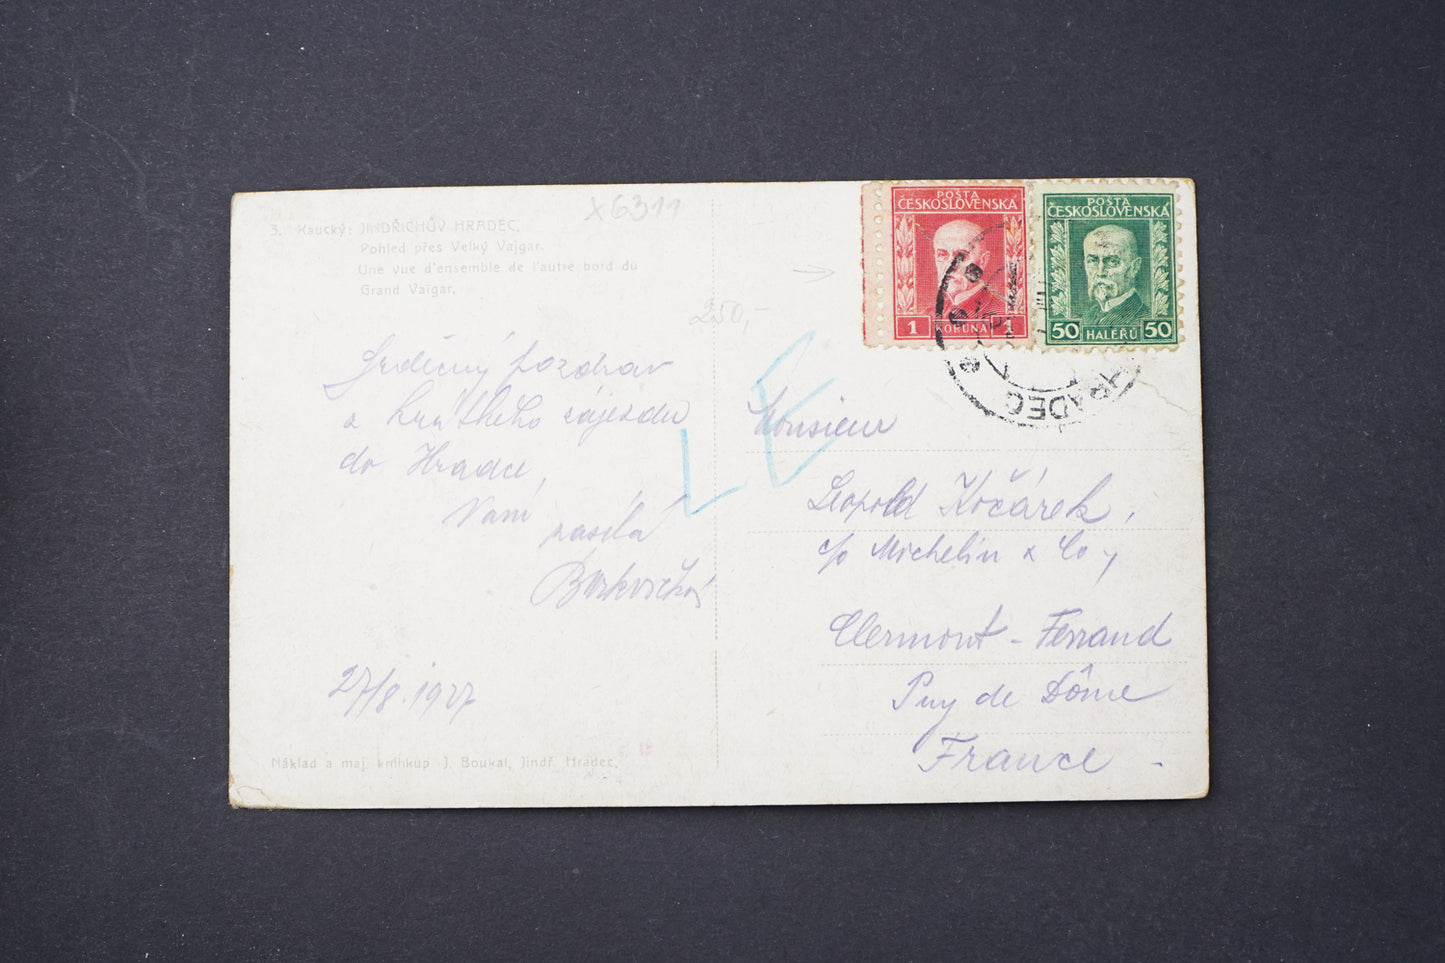 x6311
3. Kaucký: JINDŘICHŮV HRADEC.
Pohled přes Velký Vajgar.
Une vue d'ensemble de l'autre bord du
Grand Vaïgar.
250,-
Srdečný pozdrav
z krátkého zájezdu
do Hradce,
Vám
zasílá
27/8. 1927
Náklad a maj. knihkup. J. Boukal, Jindř. Hradec.
POŠTA
ČESKOSLOVENSKÁ
1 KORUNA 1
POŠTA
ČESKOSLOVENSKÁ
50 HALÉŘŮ 50
HRADEC
Monsieur
Leopold Kočárek,
c/o Michelin & Co,
Clermont-Ferrand
Puy de Dôme
France